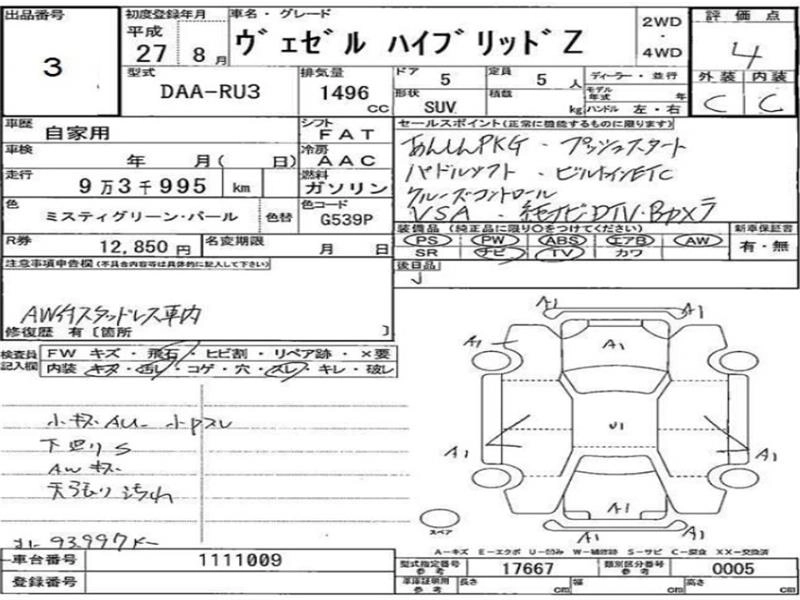 出品番号
3
初度登録年月
平成
27 8 月
車名・グレード
ヴェゼル ハイブリッドZ
2WD
・
4WD
評価点
4
外装 内装
C C
型式
DAA-RU3
排気量
1496
cc
ドア 5
定員 5 人
ディーラー・並行
形状 SUV
積載 kg
モデル年式 年
ハンドル 左・右
車歴 自家用
シフト FAT
車検 年 月( 日)
冷房 AAC
走行 9万3千995 km
燃料 ガソリン
色 ミスティグリーン・パール
色替
色コード G539P
R券 12,850 円
名変期限 月 日
セールスポイント(正常に機能するものに限ります)
あんしんPKG・プッシュスタート
パドルシフト・ビルトインETC
クルーズコントロール
VSA・純ナビDTV・Bカメラ
装備品 (純正品に限り○をつけてください)
PS PW ABS エアB AW
SR ナビ TV カワ
新車保証書
有・無
後日品
注意事項申告欄(不具合内容等は具体的に記入して下さい)
AW付スタッドレス車内
修復歴 有〔箇所 〕
検査員記入欄
FW キズ・飛石・ヒビ割・リペア跡・×要
内装 キズ・汚レ・コゲ・穴・スレ・キレ・破レ
小キズAU 小Pスレ
下廻りS
AWキズ
天張り汚れ
93,997K
A1 A1
A1 A1 A1
U1
A1 A1
A1
A1 A1
スペア
A-キズ E-エクボ U-凹み W-補修跡 S-サビ C-腐食 XX-交換済
車台番号 1111009
登録番号
型式指定番号 参考 17667
類別区分番号 参考 0005
車庫証明用 参考
長さ cm
幅 cm
高さ cm